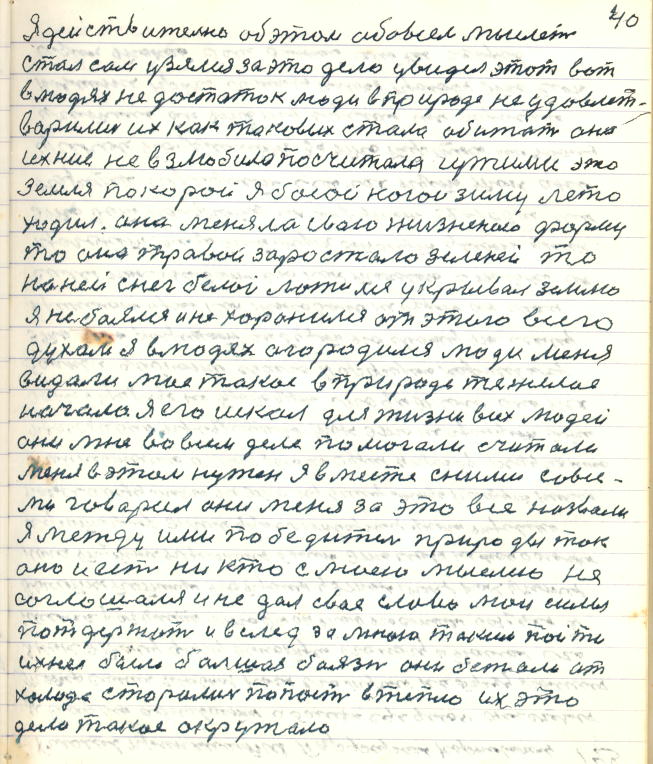 40
Я действително об этом обовсем мыслет
стал сам узялся за это дело увидел этот вот
в людях не достаток люди в природе не удовлет-
варили их как таковых стала обитат она
ихние не взлюбила посчитала чужими это
Земля по корой я босой ногой зиму лето
ходил. она меняла сваю жизненою форму
то она травой заростало зеленей то
на ней снег белой лотился укрывал землю
я не боялся и не хоронился от этого всего
духом я в людях огородился люди меня
видали мое такое в природе тежелое
начало я его искал для жизни всех людей
они мне во всем деле помогали считали
меня в этом нужен я вместе с ними с сове-
ми говарил они меня за это все назвали
я между ими победител природы так
оно и ест ни кто с моею мыслию не
соглошался и не дал свае слово мои силы
потдержат и вслед за мною таким пойти
ихнея было балшая баязн они бежали от
холода старалис попост в тепло их это
дело такое окружало